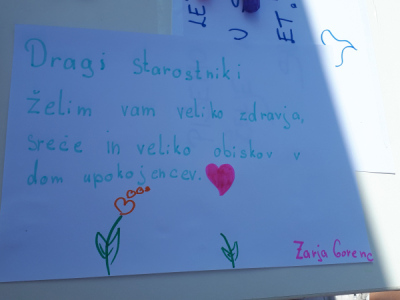 Dragi starostniki
želim vam veliko zdravja,
sreče in veliko obiskov v
dom upokojencev.
Zarja Gorenc